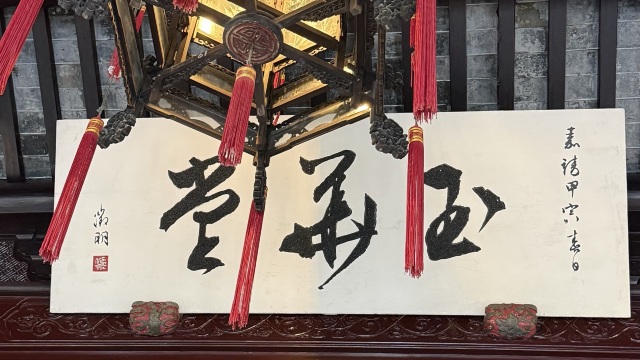 嘉靖甲寅春日
玉華堂
徵明